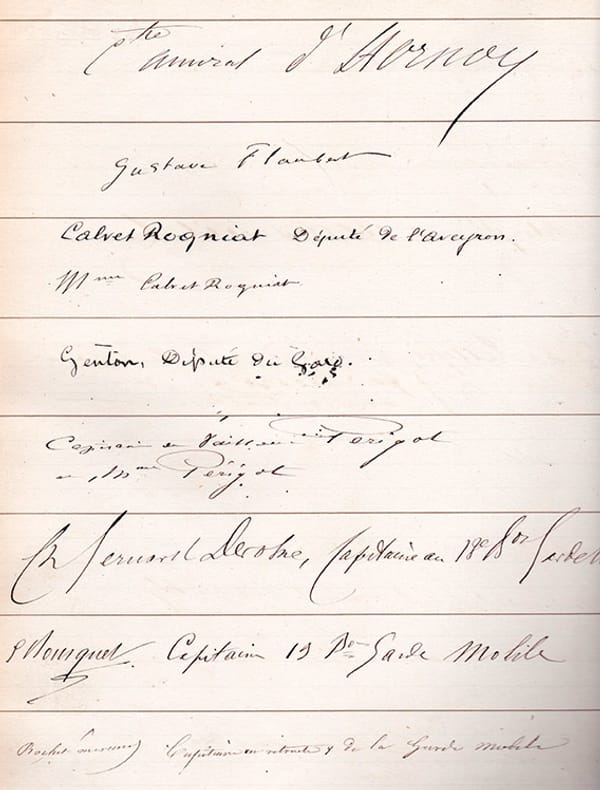 Ctre amiral d'Hornoy
Gustave Flaubert
Calvet Rogniat Député de l'Aveyron.
Mme Calvet Rogniat
Genton, Député du Gard.
Capitaine de Vaisseau Périgot
et Mme Périgot
Ch Bernard Derosne, Capitaine au 18e Bon Garde
P Bousquet Capitaine 19 Bon Garde Mobile
Capitaine en retraite & de la Garde mobile